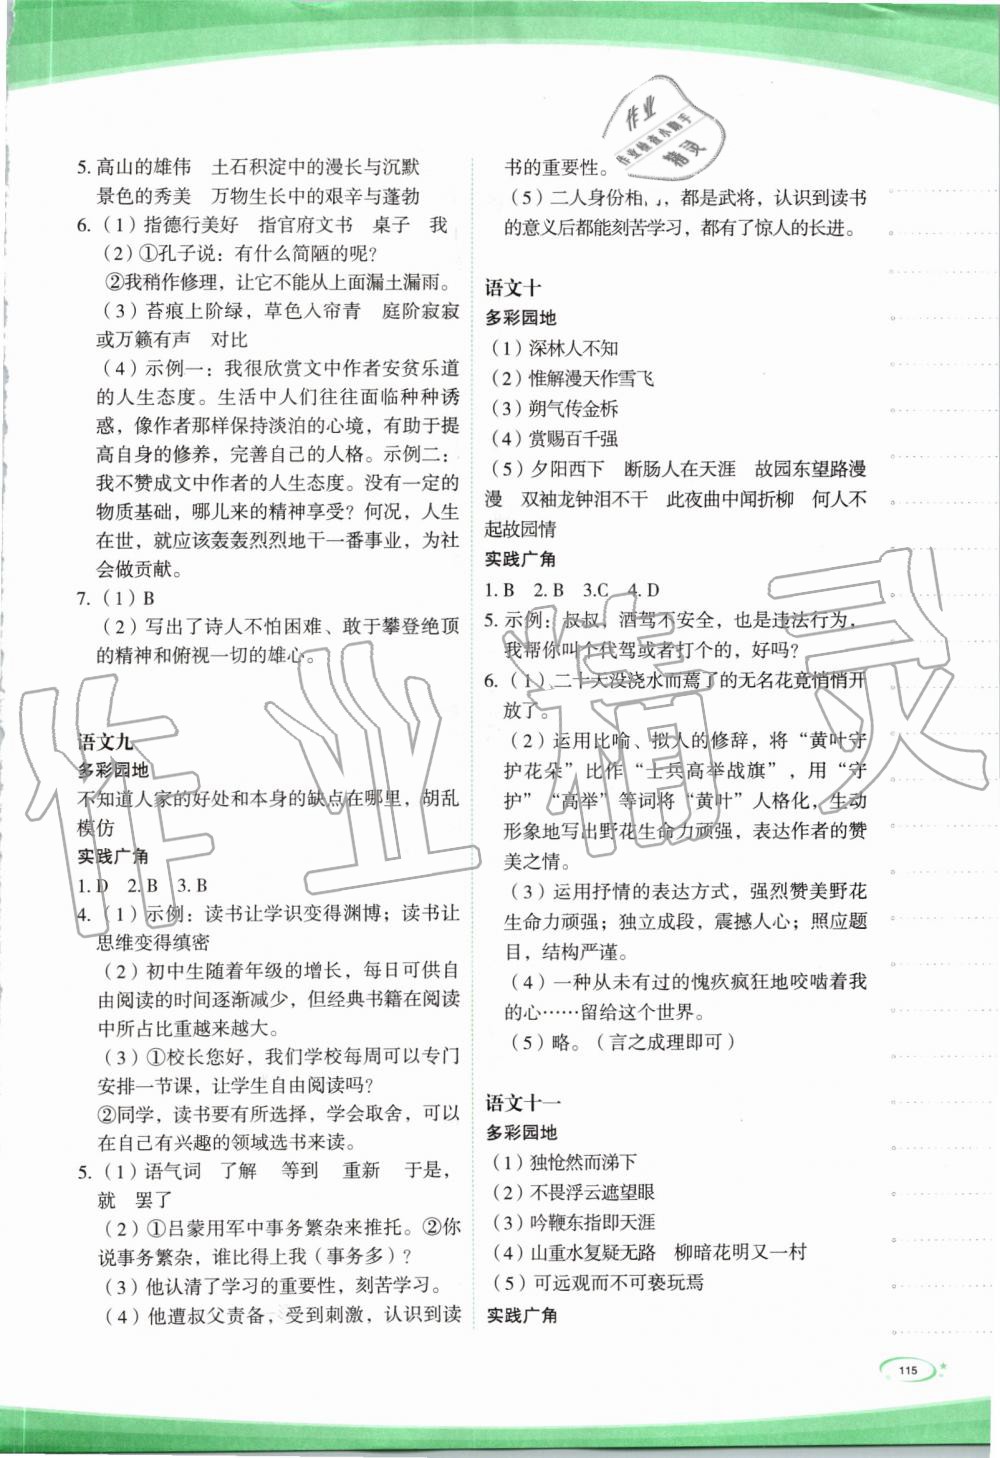 5. 高山的雄伟　土石积淀中的漫长与沉默
景色的秀美　万物生长中的艰辛与蓬勃
6. （1）指德行美好　指官府文书　桌子　我
（2）①孔子说：有什么简陋的呢？
②我稍作修理，让它不能从上面漏土漏雨。
（3）苔痕上阶绿，草色入帘青　庭阶寂寂
或万籁有声　对比
（4）示例一：我很欣赏文中作者安贫乐道
的人生态度。生活中人们往往面临种种诱
惑，像作者那样保持淡泊的心境，有助于提
高自身的修养，完善自己的人格。示例二：
我不赞成文中作者的人生态度。没有一定的
物质基础，哪儿来的精神享受？何况，人生
在世，就应该轰轰烈烈地干一番事业，为社
会做贡献。
7. （1）B
（2）写出了诗人不怕困难、敢于攀登绝顶
的精神和俯视一切的雄心。
语文九
多彩园地
不知道人家的好处和本身的缺点在哪里，胡乱
模仿
实践广角
1. D　2. B　3. B
4. （1）示例：读书让学识变得渊博；读书让
思维变得缜密
（2）初中生随着年级的增长，每日可供自
由阅读的时间逐渐减少，但经典书籍在阅读
中所占比重越来越大。
（3）①校长您好，我们学校每周可以专门
安排一节课，让学生自由阅读吗？
②同学，读书要有所选择，学会取舍，可以
在自己有兴趣的领域选书来读。
5. （1）语气词　了解　等到　重新　于是，
就　罢了
（2）①吕蒙用军中事务繁杂来推托。②你
说事务繁杂，谁比得上我（事务多）？
（3）他认清了学习的重要性，刻苦学习。
（4）他遭叔父责备，受到刺激，认识到读
书的重要性。
（5）二人身份相，都是武将，认识到读书
的意义后都能刻苦学习，都有了惊人的长进。
语文十
多彩园地
（1）深林人不知
（2）惟解漫天作雪飞
（3）朔气传金柝
（4）赏赐百千强
（5）夕阳西下　断肠人在天涯　故园东望路漫
漫　双袖龙钟泪不干　此夜曲中闻折柳　何人不
起故园情
实践广角
1. B　2. B　3.C　4. D
5. 示例：叔叔，酒驾不安全，也是违法行为，
我帮你叫个代驾或者打个的，好吗？
6. （1）二十天没浇水而蔫了的无名花竟悄悄开
放了。
（2）运用比喻、拟人的修辞，将“黄叶守
护花朵”比作“士兵高举战旗”，用“守
护”“高举”等词将“黄叶”人格化，生动
形象地写出野花生命力顽强，表达作者的赞
美之情。
（3）运用抒情的表达方式，强烈赞美野花
生命力顽强；独立成段，震撼人心；照应题
目，结构严谨。
（4）一种从未有过的愧疚疯狂地咬啮着我
的心……留给这个世界。
（5）略。（言之成理即可）
语文十一
多彩园地
（1）独怆然而涕下
（2）不畏浮云遮望眼
（3）吟鞭东指即天涯
（4）山重水复疑无路　柳暗花明又一村
（5）可远观而不可亵玩焉
实践广角
115
作业
作业检查小助手
精灵
作业精灵